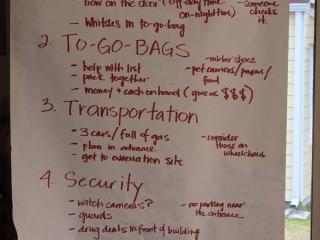 bow on the door (off day time
on-night time)
- someone
checks
it.
- Whistles in to-go-bag
2. TO-GO-BAGS
- help with list
- pack together
- money & cash on hand (give us $$$)
- rubber shoes
- pet carriers / papers /
food
3. Transportation
- 3 cars / full of gas
- plan in advance
- get to evacuation site
- consider
those on
wheelchairs
4. Security
- watch cameras?
- guards
- drug deals in front of building
- no parking near
the entrance